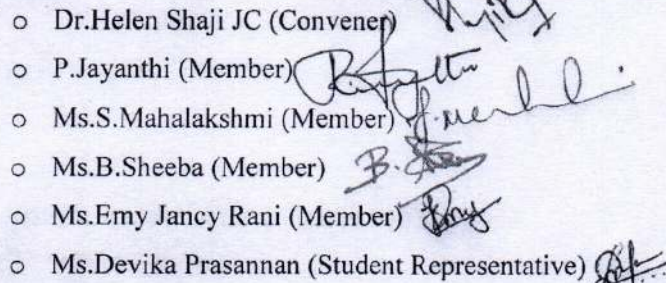 o Dr.Helen Shaji JC (Convener)
o P.Jayanthi (Member)
o Ms.S.Mahalakshmi (Member)
o Ms.B.Sheeba (Member)
o Ms.Emy Jancy Rani (Member)
o Ms.Devika Prasannan (Student Representative)